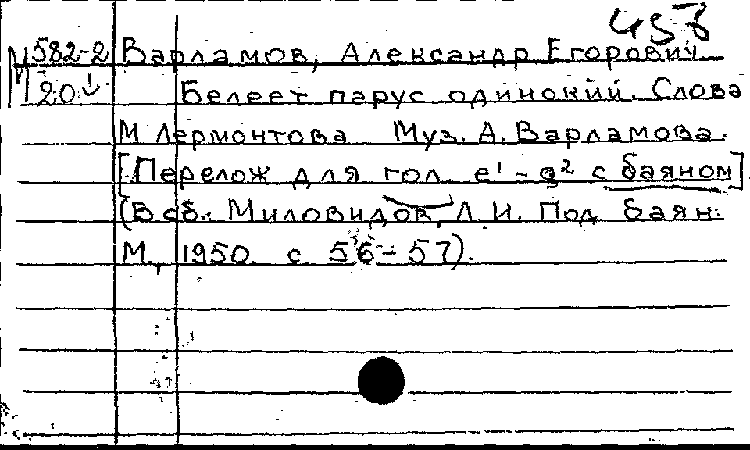 457
М 582-2 Варламов, Александр Егорович
20↓ Белеет парус одинокий. Слова
М Лермонтова Муз. А. Варламова.
[Перелож для гол e¹ – g² с баяном]
(В сб.: Миловидов, Л. И. Под баян.
М, 1950. с 56 – 57).